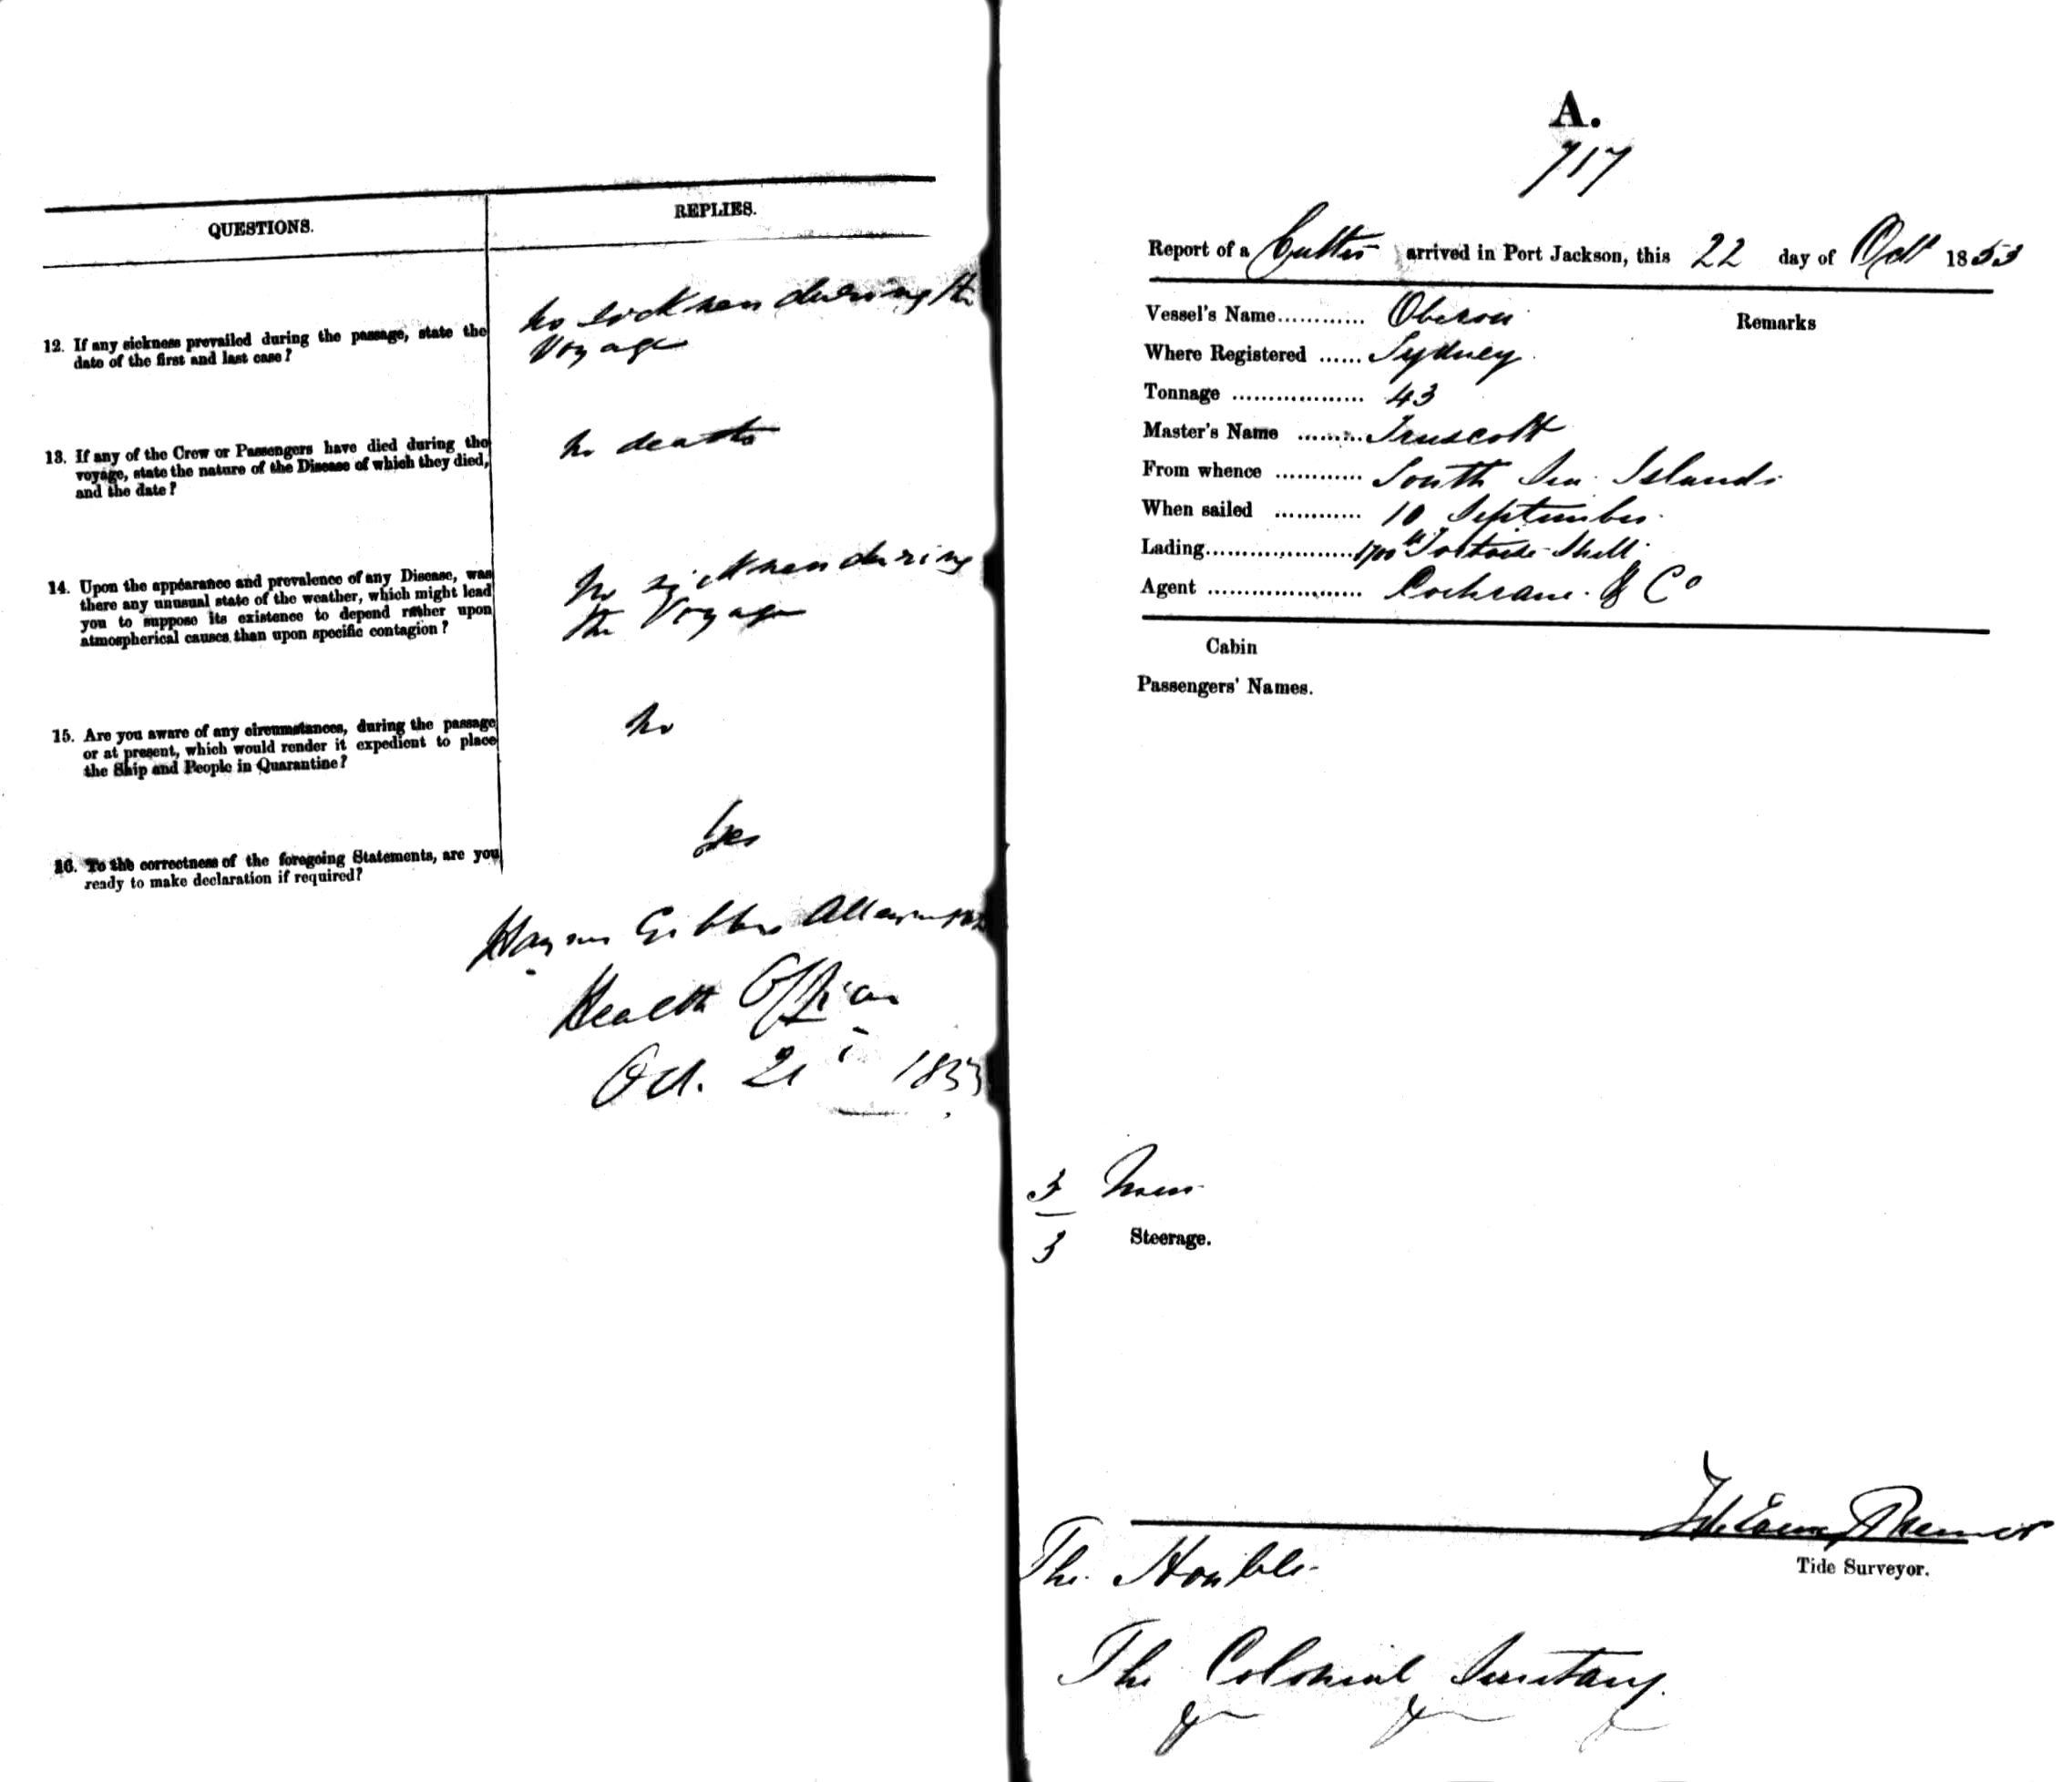 QUESTIONS.
REPLIES.
12. If any sickness prevailed during the passage, state the
date of the first and last case?
no sickness during the
Voyage
13. If any of the Crew or Passengers have died during the
voyage, state the nature of the Disease of which they died,
and the date?
no deaths
14. Upon the appearance and prevalence of any Disease, was
there any unusual state of the weather, which might lead
you to suppose its existence to depend rather upon
atmospherical causes than upon specific contagion?
No sickness during
the Voyage
15. Are you aware of any circumstances, during the passage
or at present, which would render it expedient to place
the Ship and People in Quarantine?
no
16. To the correctness of the foregoing Statements, are you
ready to make declaration if required?
Yes
Haynes Gibbes Alleyne
Health Officer
Oct. 21 1853
A.
717
Report of a Cutter arrived in Port Jackson, this 22 day of Oct 1853
Vessel's Name............ Oberon
Remarks
Where Registered ...... Sydney
Tonnage .................. 43
Master's Name ......... Truscott
From whence ............ South Sea Islands
When sailed ............ 10 September
Lading.....................1700 lb Tortoise Shell
Agent ..................... Cochrane & Co
Cabin
Passengers' Names.
3 Men
Steerage.
3
Tide Surveyor.
The Honble
The Colonial Secretary